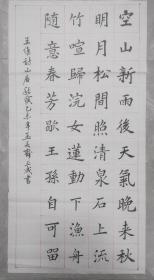 空山新雨後天氣晚来秋
明月松間照清泉石上流
竹喧歸浣女蓮動下漁舟
隨意春芳歇王孫自可留
王維詩山居秋暝乙未年